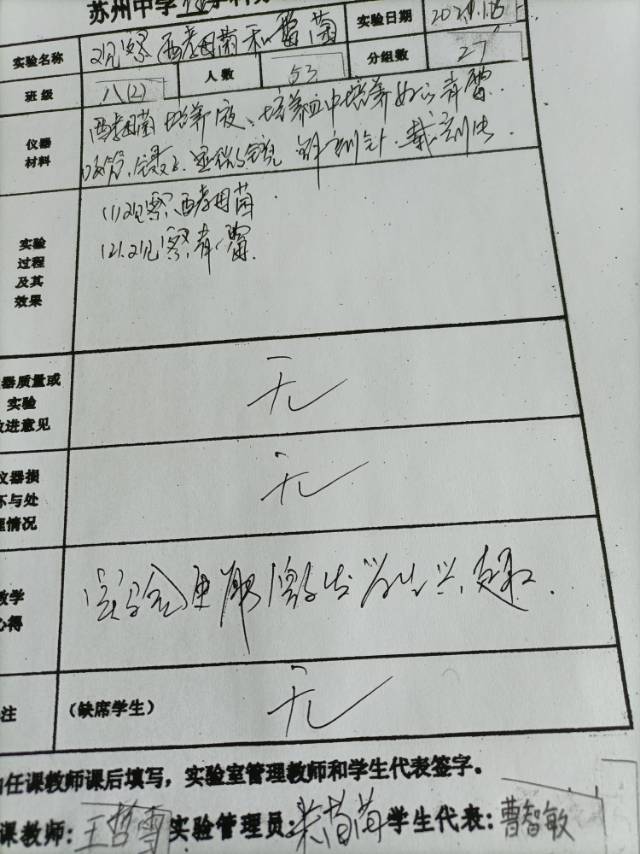 苏州中学
实验名称 观察酵母菌和霉菌 实验日期
班级 八(2) 人数 53 分组数 27
仪器材料 酵母菌培养液、培养皿中培养好的青霉
吸管、显微镜 解剖针、载剖片
实验过程及其效果 (1)观察酵母菌
(2)观察青霉
器质量或
实验
改进意见 无
仪器损
坏与处
理情况 无
教学
心得 实验更能激发学生兴趣.
注 (缺席学生) 无
由任课教师课后填写，实验室管理教师和学生代表签字。
课教师: 王哲雪 实验管理员: 学生代表: 曹智敏